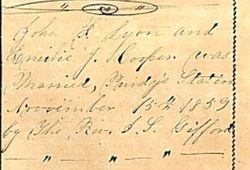 John H. Lyon and
Emilie J. Hooper was
Married, Purdy's Station
November 15th 1859
by The Rev. S. L. Gifford
" " " "